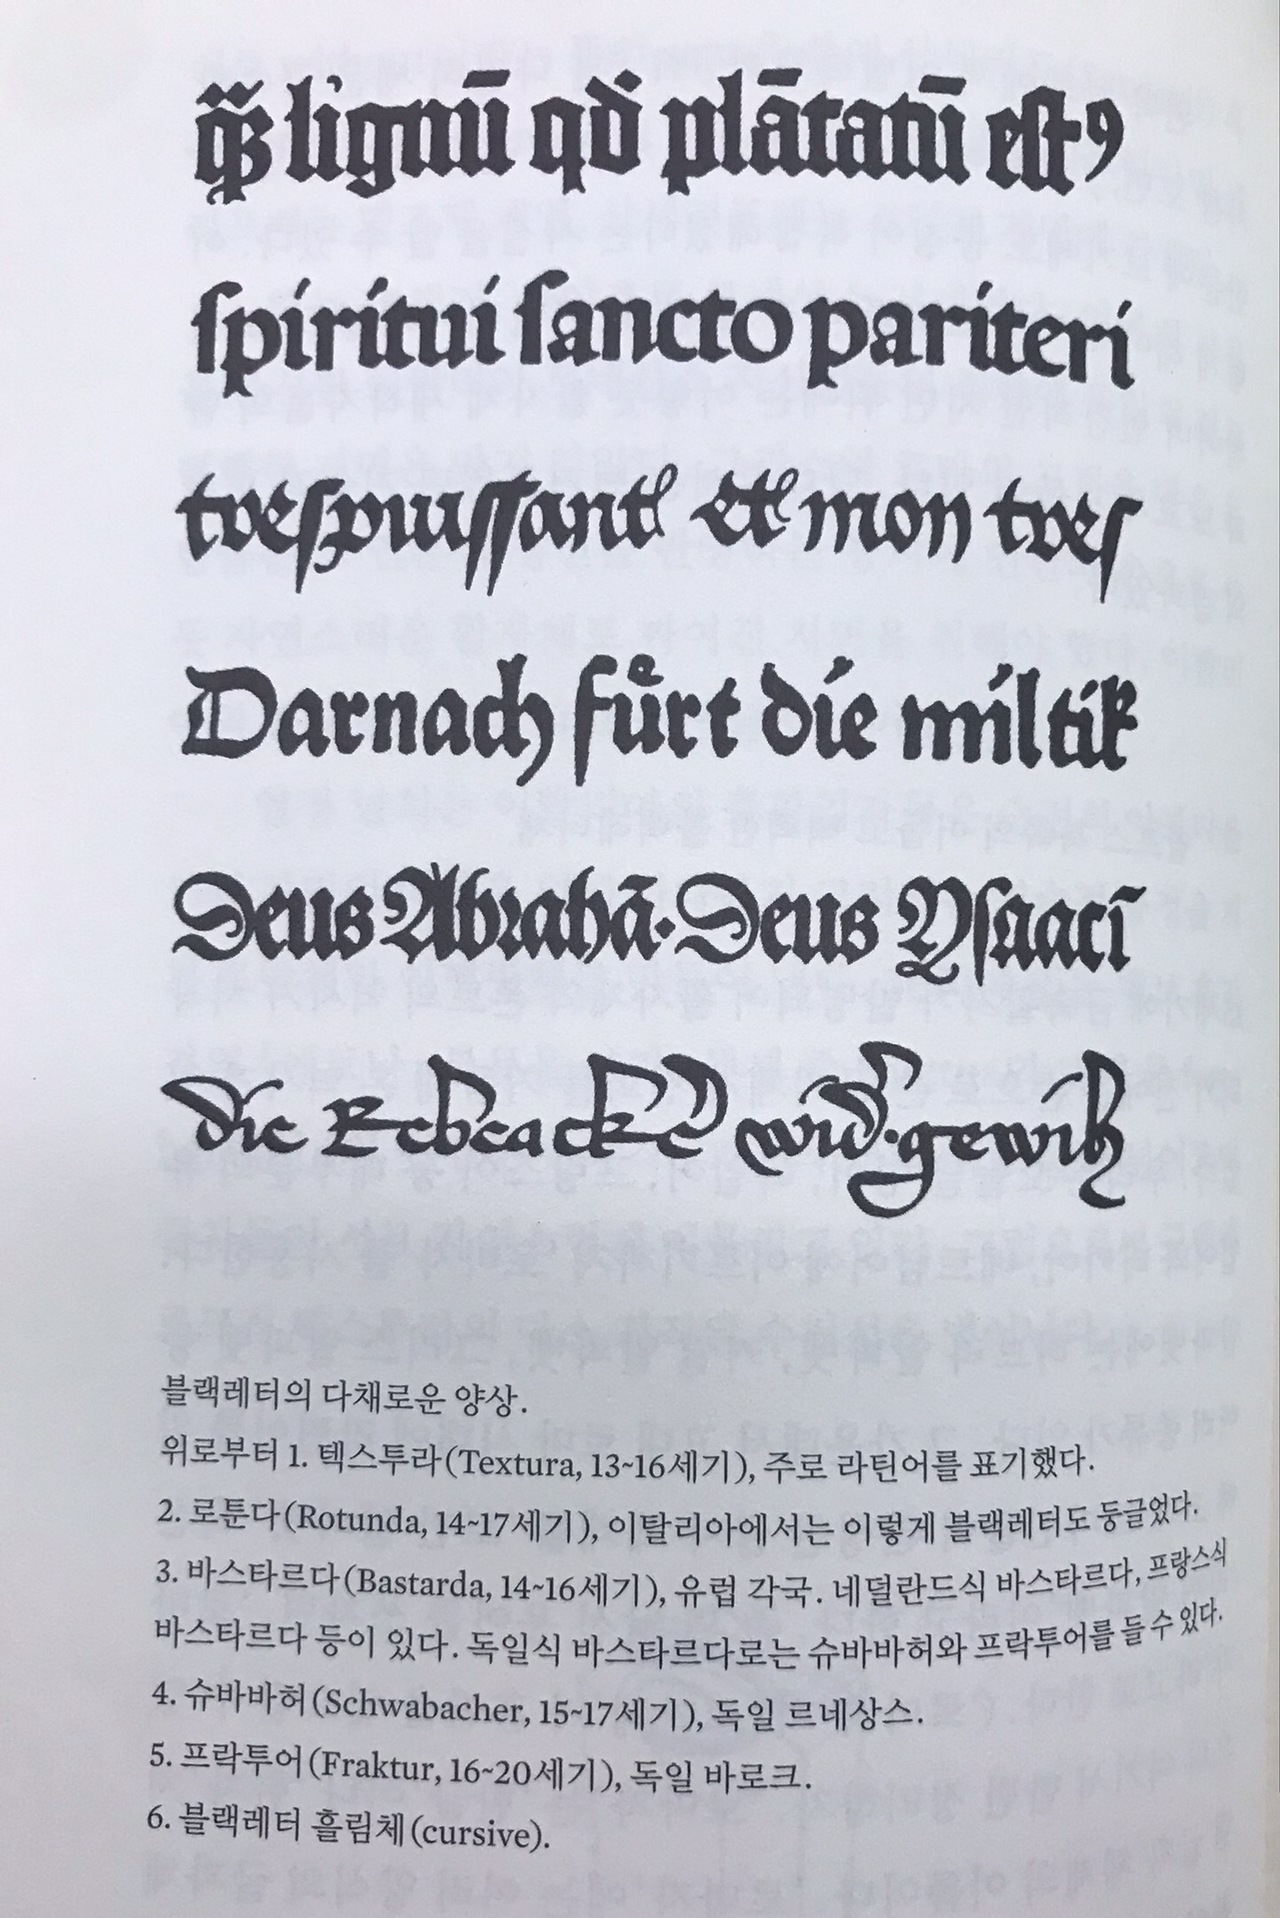 lignū qđ plātatū eſt
ſpiritui ſancto pariteri
treſpuiſſant et mon treſ
Darnach fůrt die miltik
Deus Abrahā·Deus Yſaac ī
die gewiß
블랙레터의 다채로운 양상.
위로부터 1. 텍스투라(Textura, 13~16세기), 주로 라틴어를 표기했다.
2. 로툰다(Rotunda, 14~17세기), 이탈리아에서는 이렇게 블랙레터도 둥글었다.
3. 바스타르다(Bastarda, 14~16세기), 유럽 각국. 네덜란드식 바스타르다, 프랑스식
바스타르다 등이 있다. 독일식 바스타르다로는 슈바바허와 프락투어를 들 수 있다.
4. 슈바바허(Schwabacher, 15~17세기), 독일 르네상스.
5. 프락투어(Fraktur, 16~20세기), 독일 바로크.
6. 블랙레터 흘림체(cursive).